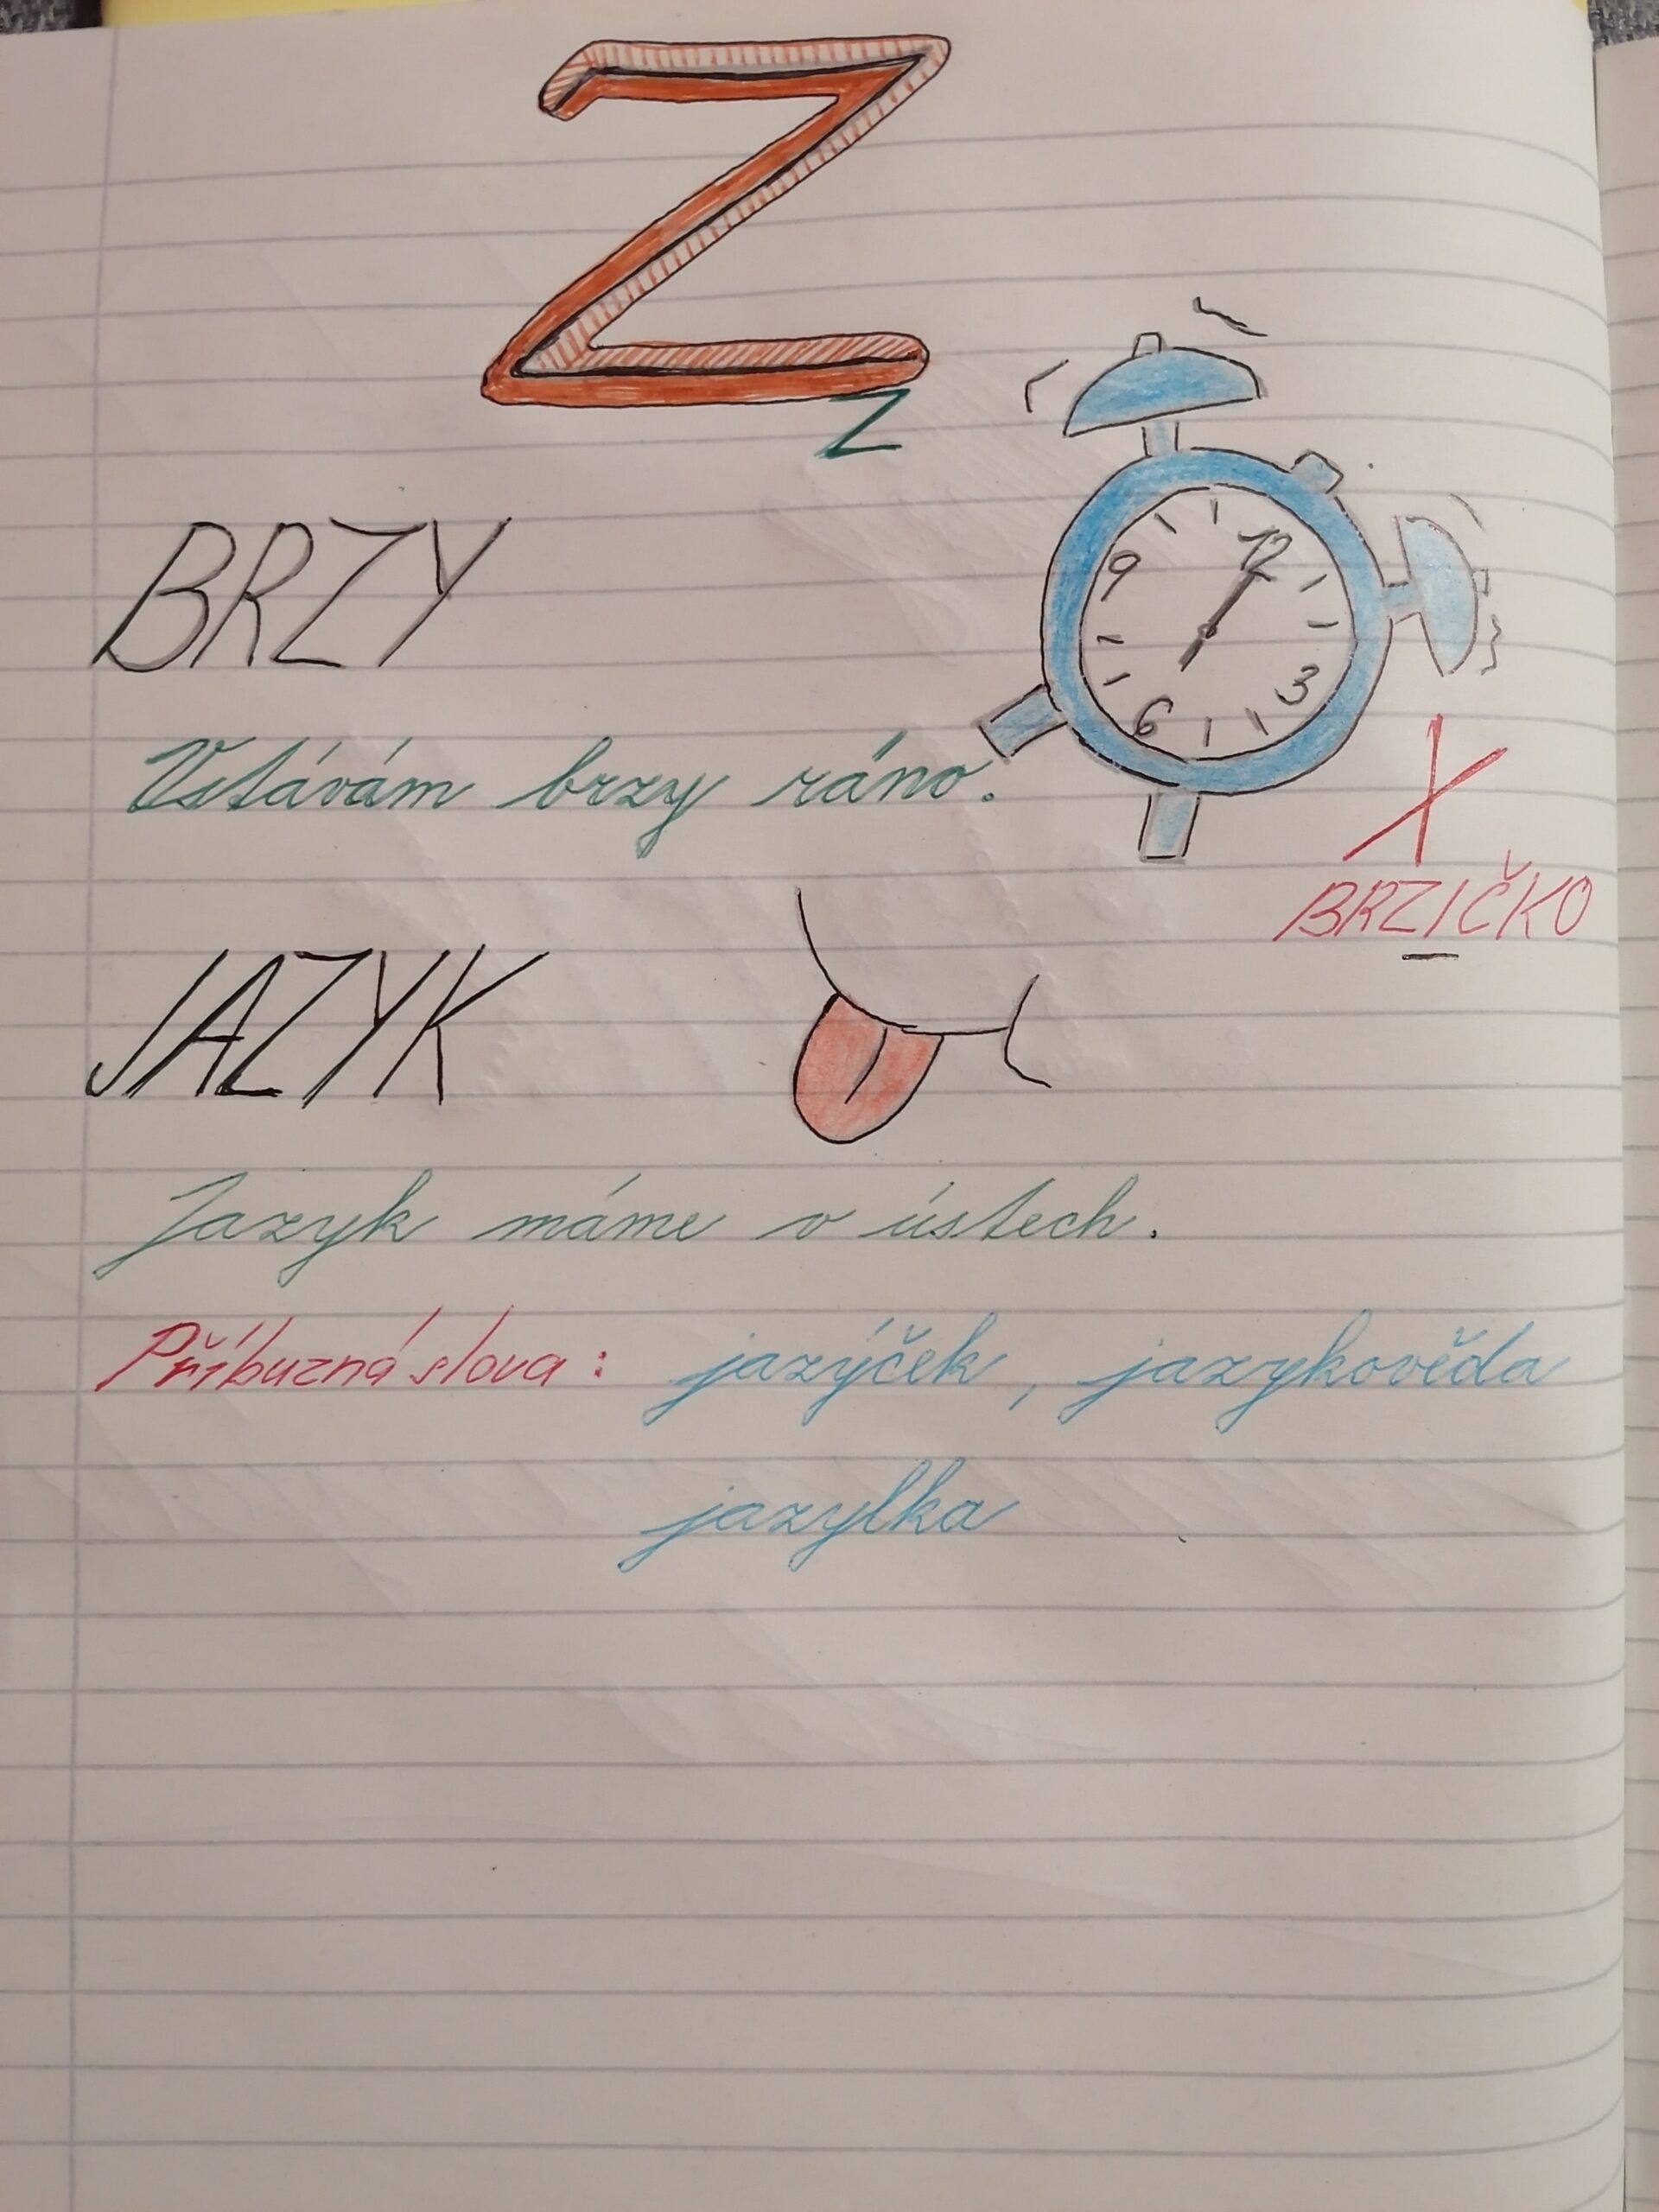 Z
Z
BRZY
12
9
3
6
Vstávám brzy ráno.
X
BRZIČKO
JAZYK
Jazyk máme v ústech.
Příbuzná slova: jazýček, jazykověda
jazylka